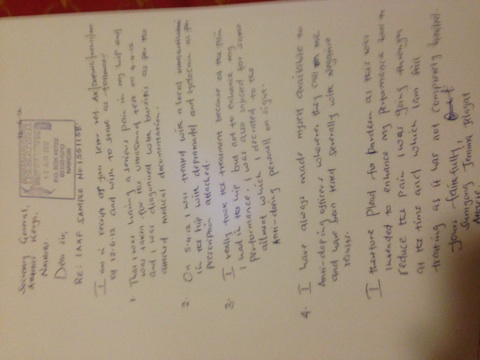 Secretary General,
Athletics Kenya,
Nairobi
Dear Sir,
Re: IAAF SAMPLE NO
I am in receipt of your letter ref
of 12.6.12 and wish to state as follows:
1. That I was having a serious pain in my hip and
was taken for the ultrasound test on 4.4.12
and I was diagnosed with bursitis as per the
annexed medical documentation.
2. On 5.4.12 I was treated with a local
in the hip with and as per
prescription attached.
3. I really took the treatment because of the pain
I had in the hip but not to enhance my
performance. I was also injected for some
ailment which I declared to the
Anti-doping personnel on
4. I have always made myself available to
Anti-doping officers whenever they call on me
and have been tested severally with negative
results.
I therefore plead for pardon as this was
intended to enhance my performance but to
reduce the pain I was going through
at the time and which I am still
treating as it was not completely healed.
Yours faithfully,
Jemima Jelagat